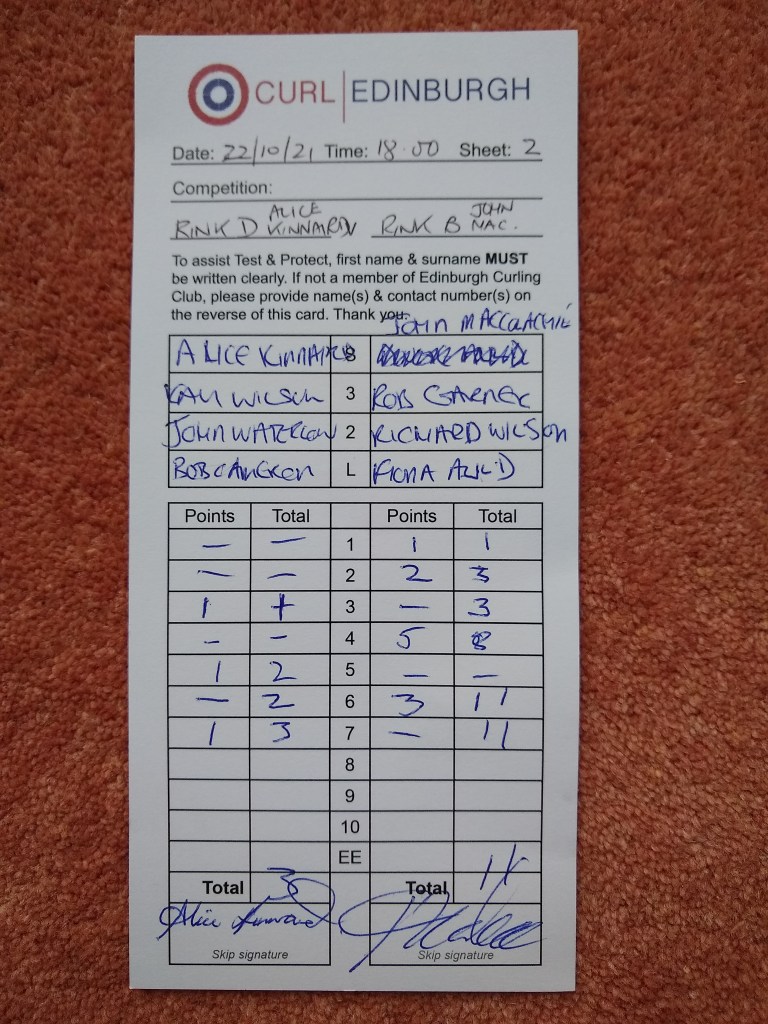 CURL EDINBURGH
Date: 22/10/21 Time: 18.00 Sheet: 2
Competition:
RINK D ALICE KINNAIRD RINK B JOHN MAC.
To assist Test & Protect, first name & surname MUST
be written clearly. If not a member of Edinburgh Curling
Club, please provide name(s) & contact number(s) on
the reverse of this card. Thank you.
JOHN
ALICE KINNAIRD S
WILSON 3 ROB
JOHN 2 RICHARD WILSON
BOB CAMERON L FIONA
Points Total Points Total
— — 1 1 1
— — 2 2 3
1 3 — 3
- - 4 5 8
1 2 5 — —
— 2 6 3 11
1 3 7 — 11
8
9
10
EE
Total 3 Total 11
Alice
Skip signature Skip signature